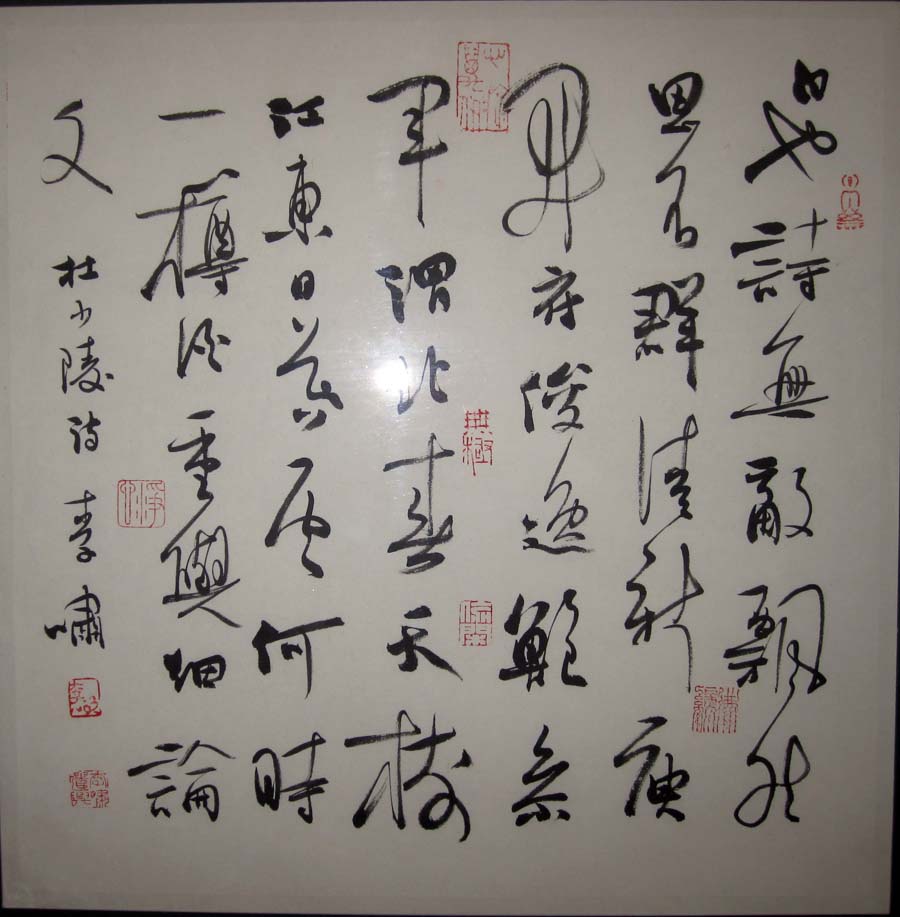 白也詩無敵飄然
思不群清新庾
開府俊逸鮑參
軍渭北春天樹
江東日暮雲何時
一樽酒重與細論
文 杜少陵詩 李嘯